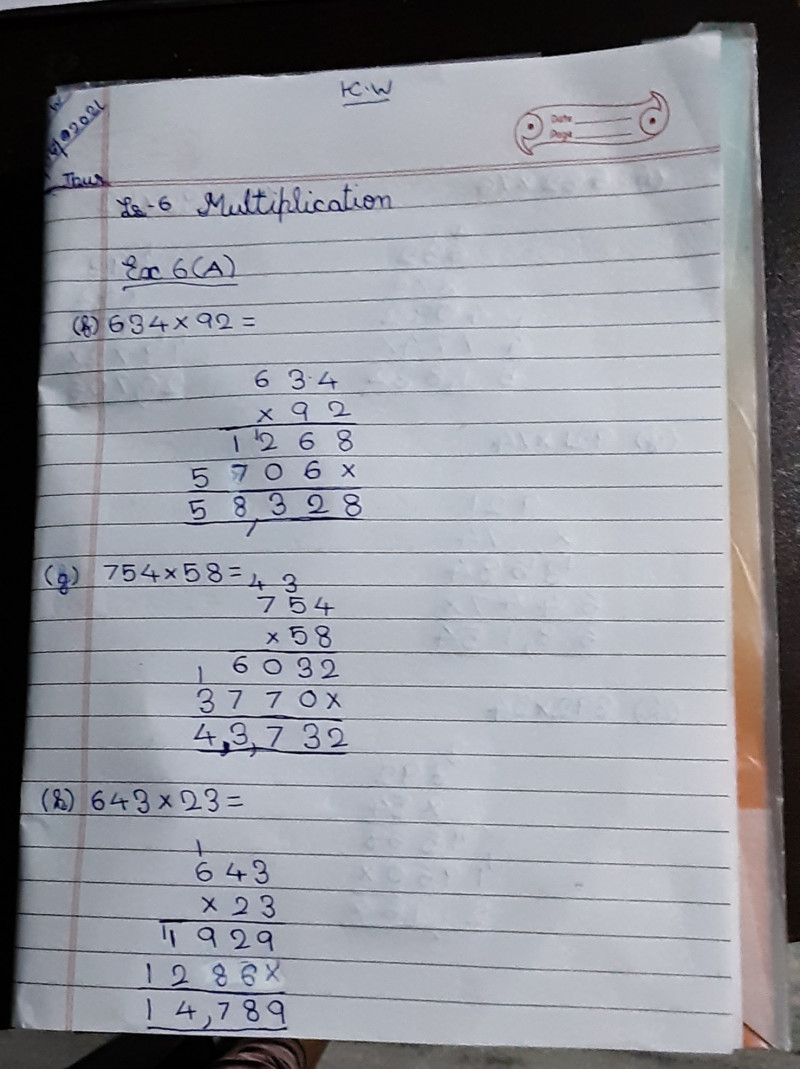 H.W
Date
Page
Thur
Ls-6 Multiplication
Ex 6(A)
(f) 634×92=
634
×92
1268
5706×
58,328
(g) 754×58=
4 3
754
×58
1
6032
3770×
4,3,732
(h) 643×23=
1
643
×23
1929
1286×
14,789